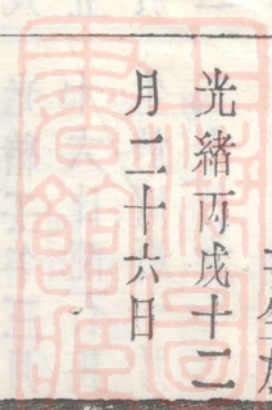 光緒丙戌十二
月二十六日